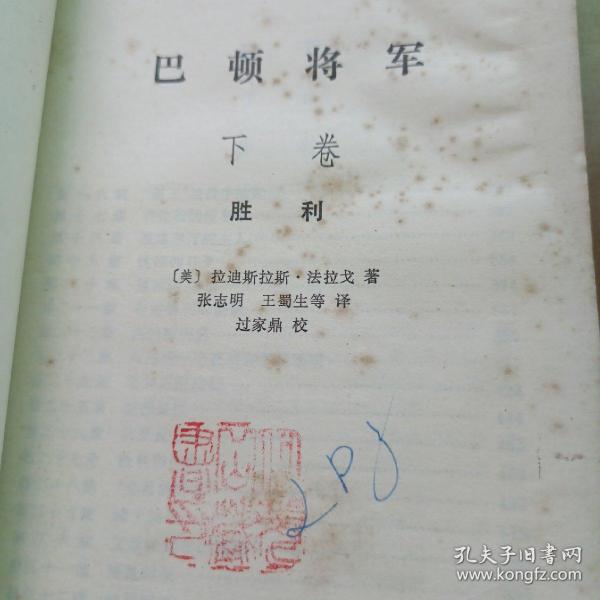 巴顿将军
下卷
胜利
〔美〕拉迪斯拉斯·法拉戈 著
张志明 王蜀生等 译
过家鼎 校
孔夫子旧书网
www.kongfz.com